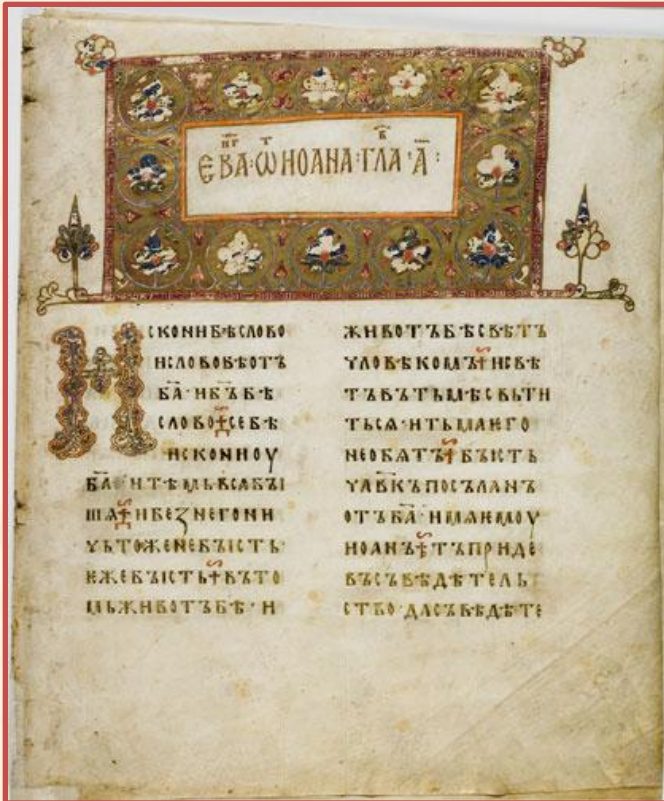 ЄВАⷩ҇ⷢ·ѾИОАНА·ГЛАⷡ·А҃:
ИСКОНИБѢСЛОВО
ИСЛОВОБѢОТЪ
БА҃·ИБ҃ЪБѢ
СЛОВО☩СЕБѢ
ИСКОНИОУ
БА҃·ИТѢМЬВСѦБЪІ
ШѦ☩ИБЕЗНЕГОНИ
ЧЬТОЖЕНЕБЪІСТЬ·
ЕЖЕБЪІСТЬ☩ВЪТО
МЬЖИВОТЪБѢ·И
ЖИВОТЪБѢСВѢТЪ
ЧЛОВѢКОМЪ☩ИСВѢ
ТЪВЪТЬМѢСВЬТИ
ТЬСѦ·ИТЬМАѤГО
НЕОБѦТЪ☩БЪІСТЬ
ЧЛ҃ВКЪПОСЪЛАНЪ
ОТЪБА҃·ИМѦѤМОУ
ИОАНЪ☩ТЪПРИДЕ
ВЪСЪВѢДѢТЕЛЬ
СТВО·ДАСЪВѢДѢТЕ